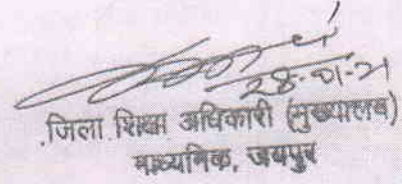 28-01-21
जिला शिक्षा अधिकारी (मुख्यालय)
माध्यमिक, जयपुर